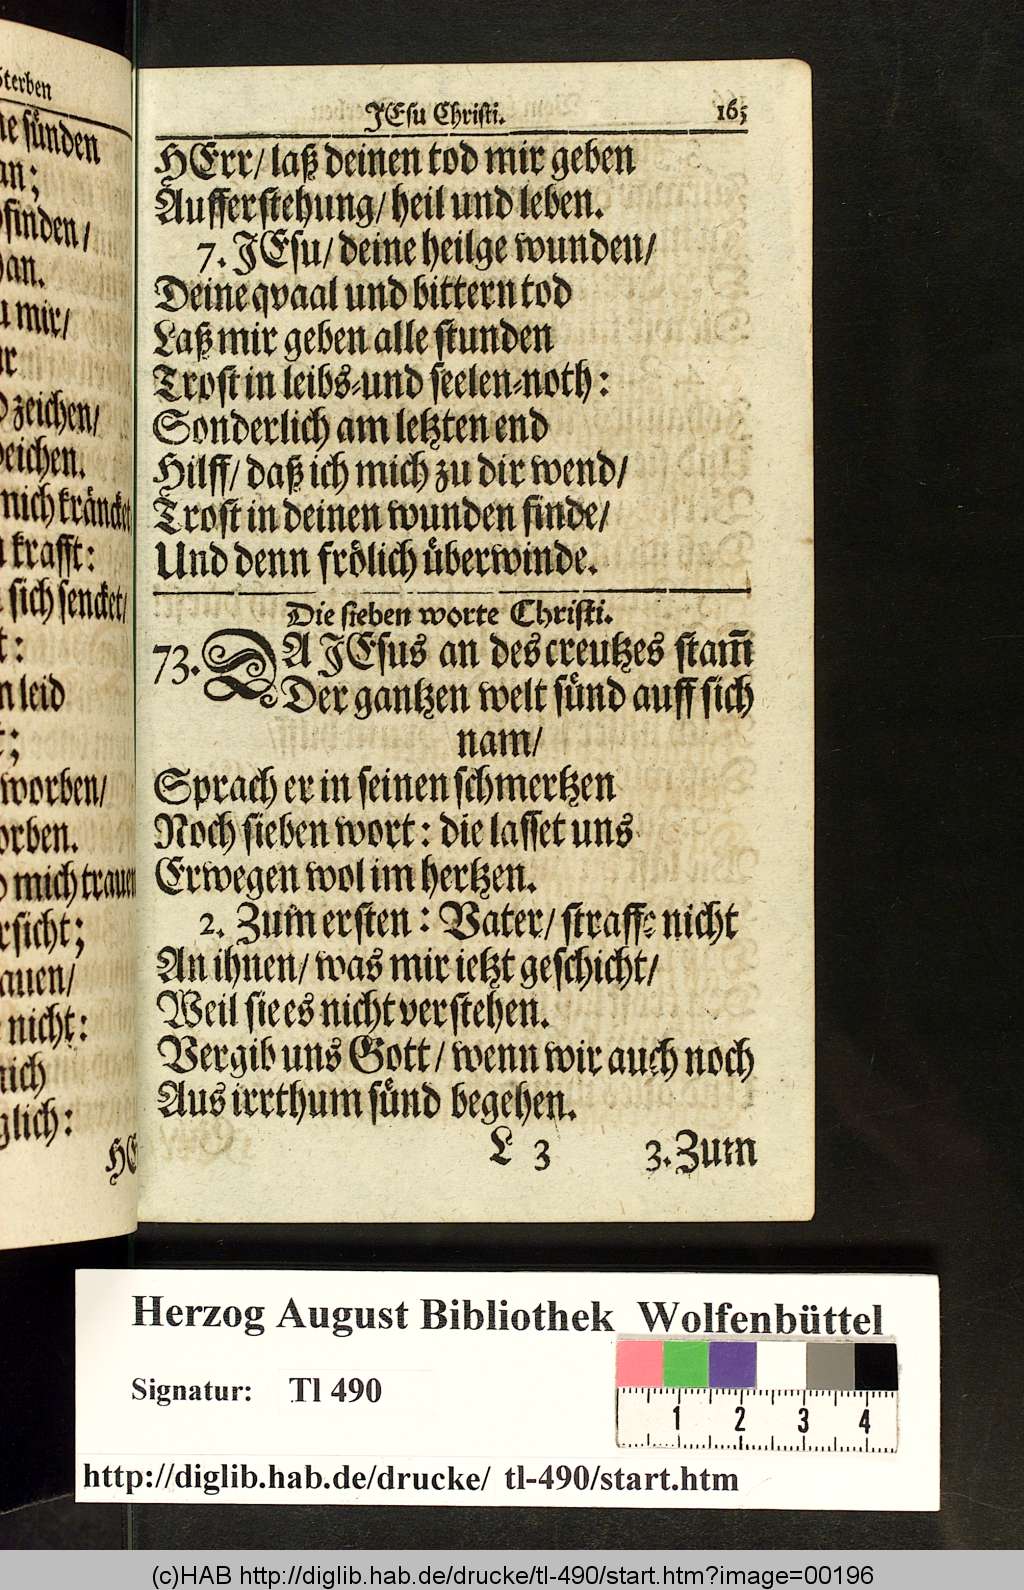 Sterben
sünden
an;
finden/
an.
mir/
zeichen/
mich kräncket
krafft:
sich sencket/
t:
leid
t;
worben/
orben.
mich trauen
rsicht;
auen/
nicht:
mich
glich:
HE
JEsu Christi. 165
HErr/ laß deinen tod mir geben
Aufferstehung/ heil und leben.
7. JEsu/ deine heilge wunden/
Deine qvaal und bittern tod
Laß mir geben alle stunden
Trost in leibs-und seelen-noth:
Sonderlich am letzten end
Hilff/ daß ich mich zu dir wend/
Trost in deinen wunden finde/
Und denn frölich überwinde.
Die sieben worte Christi.
73. DA JEsus an des creutzes stam̄
Der gantzen welt sünd auff sich
nam/
Sprach er in seinen schmertzen
Noch sieben wort: die lasset uns
Erwegen wol im hertzen.
2. Zum ersten: Vater/ straffe nicht
An ihnen/ was mir ietzt geschicht/
Weil sie es nicht verstehen.
Vergib uns Gott/ wenn wir auch noch
Aus irrthum sünd begehen.
L 3 3. Zum
Herzog August Bibliothek Wolfenbüttel
Signatur: Tl 490
1 2 3 4
http://diglib.hab.de/drucke/ tl-490/start.htm
(c)HAB http://diglib.hab.de/drucke/tl-490/start.htm?image=00196